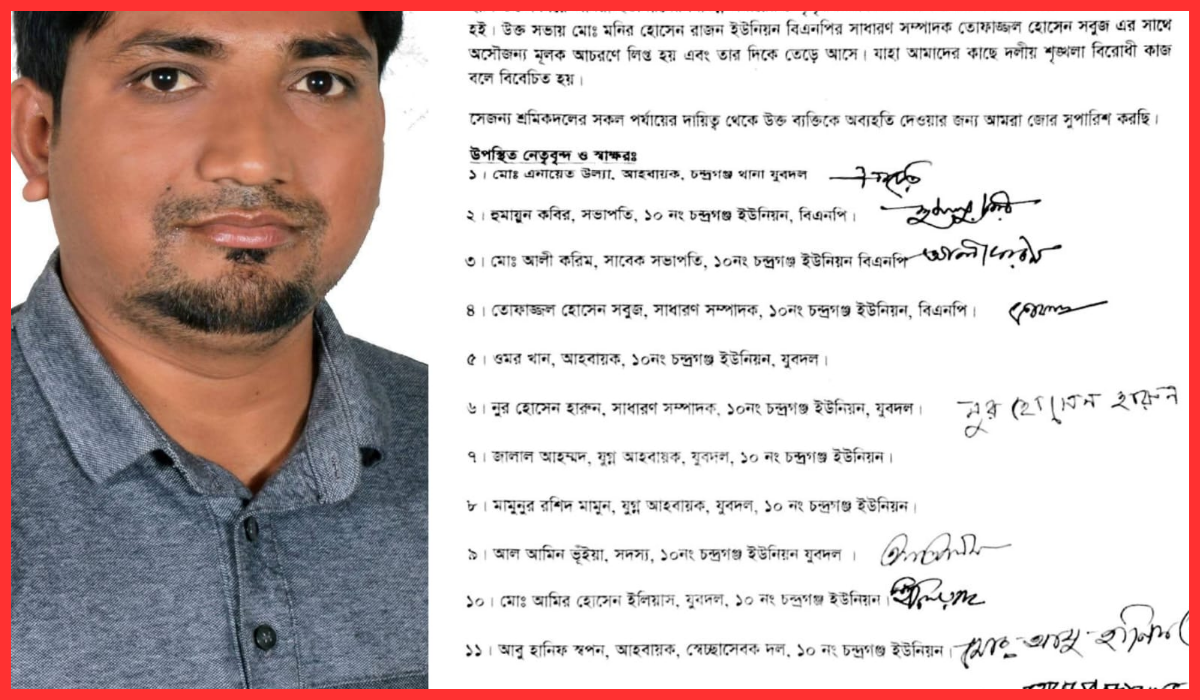 হই। উক্ত সভায় মোঃ মনির হোসেন রাজন ইউনিয়ন বিএনপির সাধারণ সম্পাদক তোফাজ্জল হোসেন সবুজ এর সাথে
অসৌজন্য মূলক আচরণে লিপ্ত হয় এবং তার দিকে তেড়ে আসে। যাহা আমাদের কাছে দলীয় শৃঙ্খলা বিরোধী কাজ
বলে বিবেচিত হয়।
সেজন্য শ্রমিকদলের সকল পর্যায়ের দায়িত্ব থেকে উক্ত ব্যক্তিকে অব্যহতি দেওয়ার জন্য আমরা জোর সুপারিশ করছি।
উপস্থিত নেতৃবৃন্দ ও স্বাক্ষরঃ
১। মোঃ এনায়েত উল্যা, আহবায়ক, চন্দ্রগঞ্জ থানা যুবদল
২। হুমায়ুন কবির, সভাপতি, ১০ নং চন্দ্রগঞ্জ ইউনিয়ন, বিএনপি।
৩। মোঃ আলী করিম, সাবেক সভাপতি, ১০নং চন্দ্রগঞ্জ ইউনিয়ন বিএনপি
৪। তোফাজ্জল হোসেন সবুজ, সাধারণ সম্পাদক, ১০নং চন্দ্রগঞ্জ ইউনিয়ন, বিএনপি।
৫। ওমর খান, আহবায়ক, ১০নং চন্দ্রগঞ্জ ইউনিয়ন, যুবদল।
৬। নুর হোসেন হারুন, সাধারণ সম্পাদক, ১০নং চন্দ্রগঞ্জ ইউনিয়ন, যুবদল। নুর হোসেন হারুন
৭। জালাল আহম্মদ, যুগ্ন আহবায়ক, যুবদল, ১০ নং চন্দ্রগঞ্জ ইউনিয়ন।
৮। মামুনুর রশিদ মামুন, যুগ্ন আহবায়ক, যুবদল, ১০ নং চন্দ্রগঞ্জ ইউনিয়ন।
৯। আল আমিন ভূঁইয়া, সদস্য, ১০নং চন্দ্রগঞ্জ ইউনিয়ন যুবদল ।
১০। মোঃ আমির হোসেন ইলিয়াস, যুবদল, ১০ নং চন্দ্রগঞ্জ ইউনিয়ন।
১১। আবু হানিফ স্বপন, আহবায়ক, স্বেচ্ছাসেবক দল, ১০ নং চন্দ্রগঞ্জ ইউনিয়ন।